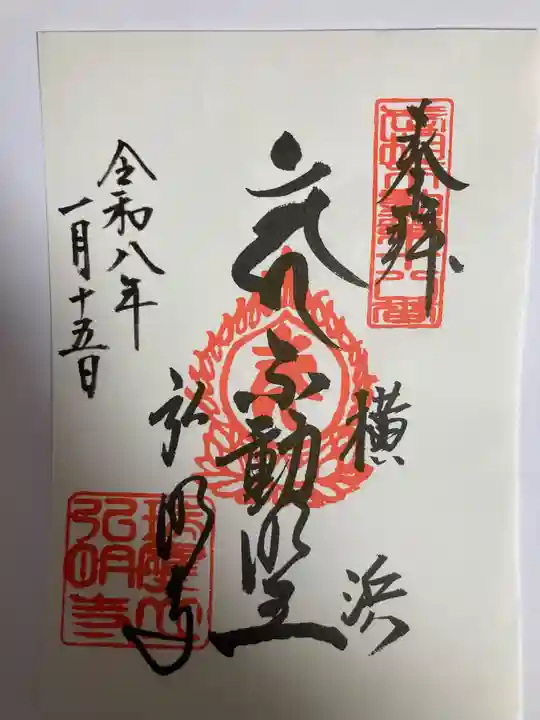 奉拝
横浜
不動明王
弘明寺
令和八年
一月十五日
弘明寺